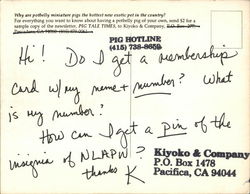 Why are potbelly miniature pigs the hottest new exotic pet in the country?
For everything you want to know about having a potbelly pig of your own, send $2 for a
sample copy of the newsletter, PIG TALE TIMES, to Kiyoko & Company, P.O. Box
Pacifica, CA
PIG HOTLINE
(415) 738-8659
Hi! Do I get a membership
card w/my name + number? What
is my number?
How can I get a pin of the
insignia of NLAPW?
thanks K
Kiyoko & Company
P.O. Box 1478
Pacifica, CA 94044